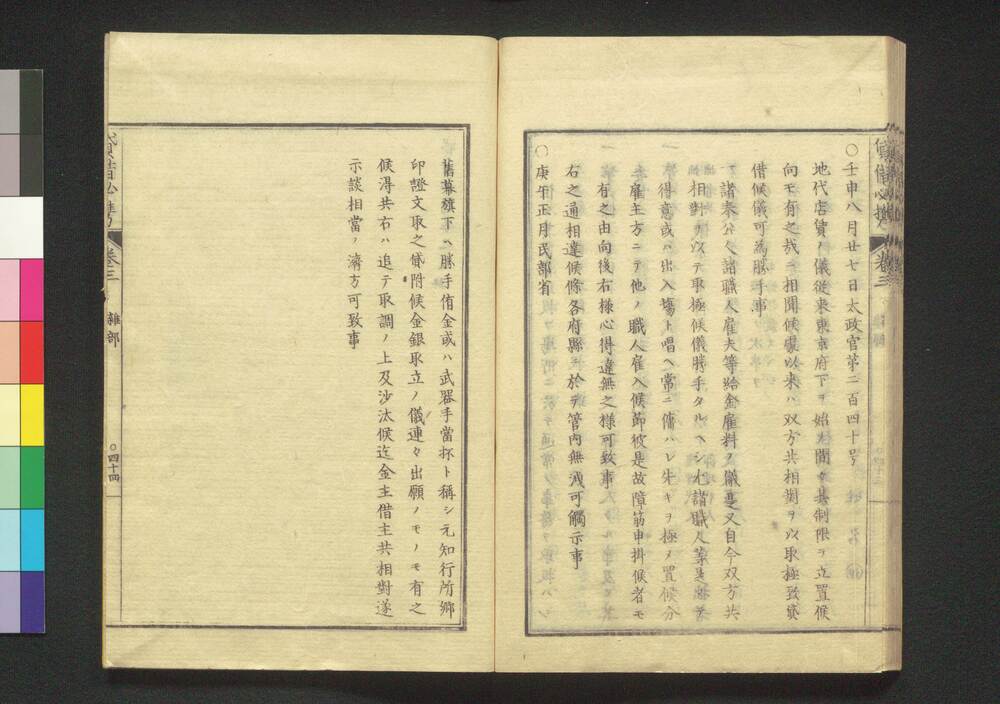 〇壬申八月廿七日太政官第二百四十号
地代店賃ノ儀従来東京府下ヲ始メ間々其制限ヲ立置候
向モ有之哉ニ相聞候處以来ハ双方共相對ヲ以取極致貸
借候儀可為勝手事
一諸奉公人諸職人雇夫等給金雇料ノ儀是又自今双方共
相對ヲ以テ取極候儀勝手タルヘシ尤諸職人等是迄
得意或ハ出入場ト唱ヘ常ニ傭ハレ先キヲ極メ置候分
雇主方ニテ他ノ職人雇入候節彼是故障筋申掛候者モ
有之由向後右様心得違無之様可致事
右之通相達候條各府縣ニ於テ管内無洩可觸示事
〇庚午正月民部省
舊幕旗下ヘ勝手侑金或ハ武器手當抔ト稱シ元知行所郷
印證文取之貸附候金銀取立ノ儀連々出願ノモノモ有之
候得共右ハ追テ取調ノ上及沙汰候迄金主借主共相對遂
示談相當ノ濟方可致事
貸借必携
巻三
雑部
〇四十四